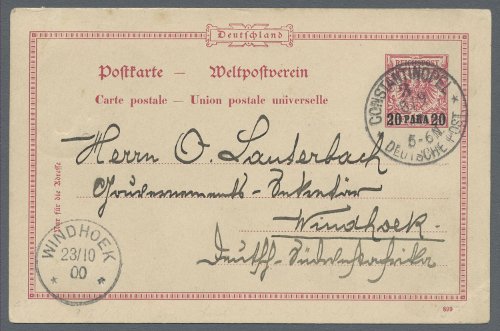 Deutschland
REICHSPOST
Postkarte — Weltpostverein
Carte postale — Union postale universelle
CONSTANTINOPEL
20 PARA 20
5-6N
DEUTSCHE POST
Herrn O. Lauterbach
Gouvernements-Sekretär
Windhoek
Deutsch-Südwestafrika
Nur für die Adresse
WINDHOEK
23/10
00
899